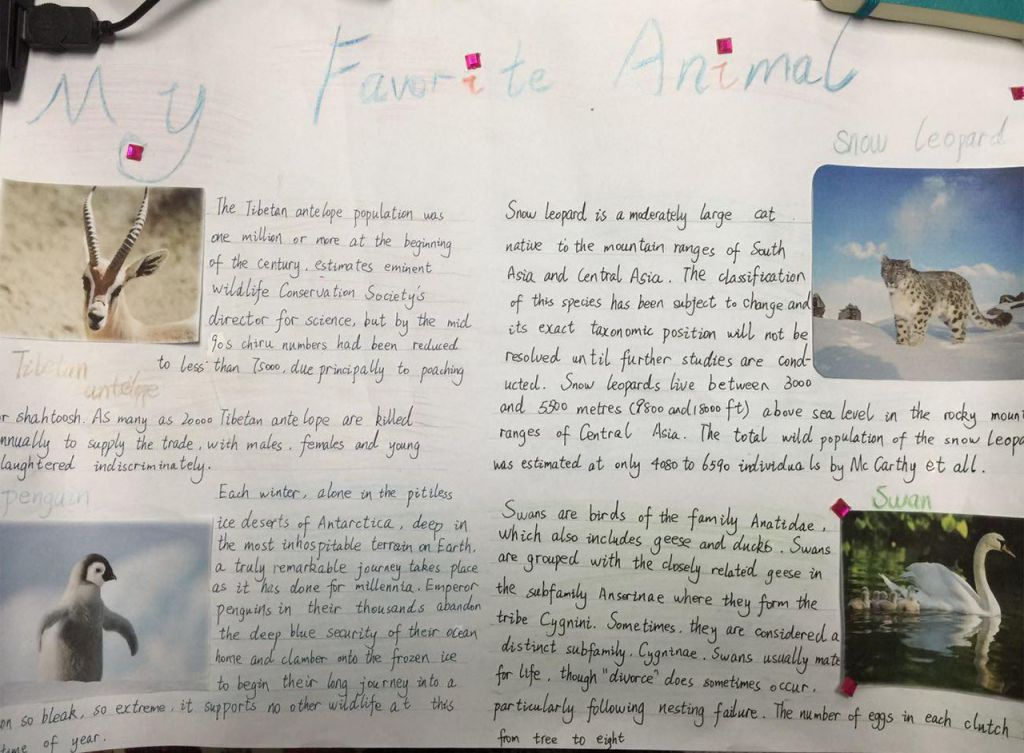 My Favorite Animal
The Tibetan antelope population was
one million or more at the beginning
of the century, estimates eminent
wildlife Conservation Society's
director for science, but by the mid
90s chiru numbers had been reduced
to less than 75000, due principally to poaching
shahtoosh. As many as 20000 Tibetan antelope are killed
nnually to supply the trade, with males, females and young
laughtered indiscriminately.
Tibetan
antelope
snow leopard
Snow leopard is a moderately large cat
native to the mountain ranges of South
Asia and Central Asia. The classification
of this species has been subject to change and
its exact taxonomic position will not be
resolved until further studies are cond-
ucted. Snow leopards live between 3000
and 5500 metres (9800 and 18000 ft) above sea level in the rocky moun
ranges of Central Asia. The total wild population of the snow leop
was estimated at only 4080 to 6590 individuals by Mc Carthy et all.
penguin
Each winter, alone in the pitiless
ice deserts of Antarctica, deep in
the most inhospitable terrain on Earth,
a truly remarkable journey takes place
as it has done for millennia. Emperor
penguins in their thousands abandon
the deep blue security of their ocean
home and clamber onto the frozen ice
to begin their long journey into a
on so bleak, so extreme, it supports no other wildlife at this
time of year.
Swan
Swans are birds of the family Anatidae,
which also includes geese and ducks. Swans
are grouped with the closely related geese in
the subfamily Anserinae where they form the
tribe Cygnini. Sometimes, they are considered a
distinct subfamily, Cygninae. Swans usually mate
for life, though "divorce" does sometimes occur,
particularly following nesting failure. The number of eggs in each clutch
from tree to eight